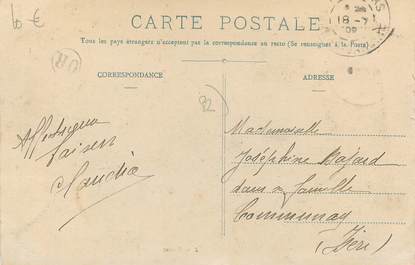 10 €
CARTE POSTALE
Tous les pays étrangers n'acceptent pas la correspondance au recto (Se renseigner à la Poste)
18 -7
09
OR
CORRESPONDANCE
ADRESSE
82
Mademoiselle
Joséphine
dans sa famille
Communay
(Isère)
Affectueux
baisers
Claudia